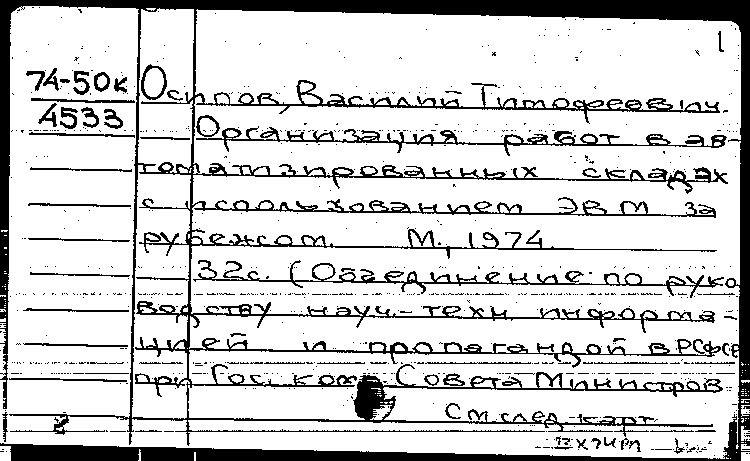 1
74-50к Осипов, Василий Тимофеевич.
4533 Организация работ в ав-
томатизированных складах
с использованием ЭВМ за
рубежом. М., 1974.
32с. (Объединение по руко
водству науч.-техн. информа-
цией и пропагандой в РСФСР
при Гос. ком. Совета Министров
См. след. карт.